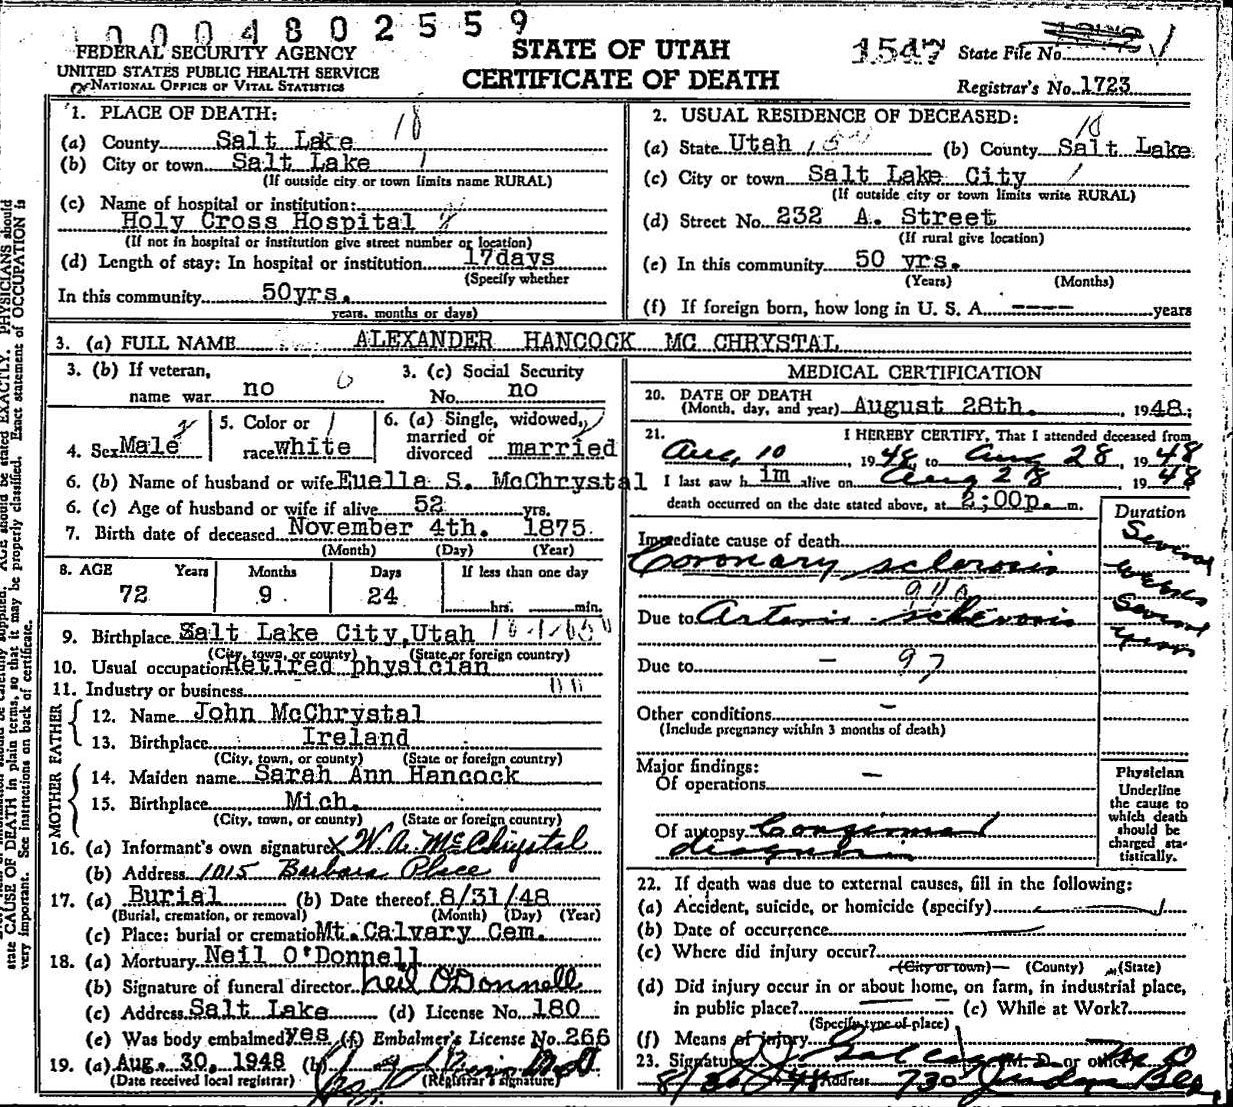 0004802559
FEDERAL SECURITY AGENCY
UNITED STATES PUBLIC HEALTH SERVICE
NATIONAL OFFICE OF VITAL STATISTICS
STATE OF UTAH
CERTIFICATE OF DEATH
1547 State File No.
Registrar's No. 1723
1. PLACE OF DEATH: 18
(a) County Salt Lake
(b) City or town Salt Lake 1
(If outside city or town limits name RURAL)
(c) Name of hospital or institution:
Holy Cross Hospital
(If not in hospital or institution give street number or location)
(d) Length of stay: In hospital or institution 17days
(Specify whether
In this community 50yrs.
years, months or days)
2. USUAL RESIDENCE OF DECEASED:
(a) State Utah (b) County Salt Lake
18
(c) City or town Salt Lake City 1
(If outside city or town limits write RURAL)
(d) Street No. 232 A. Street
(If rural give location)
(e) In this community 50 yrs.
(Years) (Months)
(f) If foreign born, how long in U. S. A. ---- years
3. (a) FULL NAME ALEXANDER HANCOCK MC CHRYSTAL
3. (b) If veteran,
name war no
3. (c) Social Security
No. no
4. Sex Male
5. Color or
race white
6. (a) Single, widowed,
married or
divorced married
6. (b) Name of husband or wife Euella S. McChrystal
6. (c) Age of husband or wife if alive 52 yrs.
7. Birth date of deceased November 4th. 1875
(Month) (Day) (Year)
8. AGE Years Months Days If less than one day
72 9 24 hrs. min.
9. Birthplace Salt Lake City,Utah
(City, town, or county) (State or foreign country)
10. Usual occupation Retired physician
11. Industry or business
FATHER
12. Name John McChrystal
13. Birthplace Ireland
(City, town, or county) (State or foreign country)
MOTHER
14. Maiden name Sarah Ann Hancock
15. Birthplace Mich.
(City, town, or county) (State or foreign country)
16. (a) Informant's own signature X W. A. McChrystal
(b) Address 1015 Barbara Place
17. (a) Burial (b) Date thereof 8/31/48
(Burial, cremation, or removal) (Month) (Day) (Year)
(c) Place: burial or cremation Mt. Calvary Cem.
18. (a) Mortuary Neil O'Donnell
(b) Signature of funeral director Neil O'Donnell
(c) Address Salt Lake (d) License No. 180
(e) Was body embalmed? yes (f) Embalmer's License No. 266
19. (a) Aug. 30, 1948 (b)
(Date received local registrar) (Registrar's signature)
MEDICAL CERTIFICATION
20. DATE OF DEATH
(Month, day, and year) August 28th. , 1948;
21. I HEREBY CERTIFY, That I attended deceased from
Aug, 10 , 1948, to Aug 28 , 1948
I last saw h im alive on Aug 28 , 1948
death occurred on the date stated above, at 2;00p. m.
Duration
Immediate cause of death
Coronary sclerosis
Several weeks
Due to Arterio-sclerosis
Several years
Due to - 97
Other conditions -
(Include pregnancy within 3 months of death)
Major findings:
Of operations -
Of autopsy Confirmed
diagnosis
Physician
Underline
the cause to
which death
should be
charged sta-
tistically.
22. If death was due to external causes, fill in the following:
(a) Accident, suicide, or homicide (specify)
(b) Date of occurrence
(c) Where did injury occur?
(City or town) (County) (State)
(d) Did injury occur in or about home, on farm, in industrial place,
in public place? (e) While at Work?
(Specify type of place)
(f) Means of injury
23. Signature M. D. or other M D
8/30/48 Address 730 Judge Bldg
state CAUSE OF DEATH in plain terms, so that it may be properly classified. Exact statement of OCCUPATION is
very important. See instructions on back of certificate.